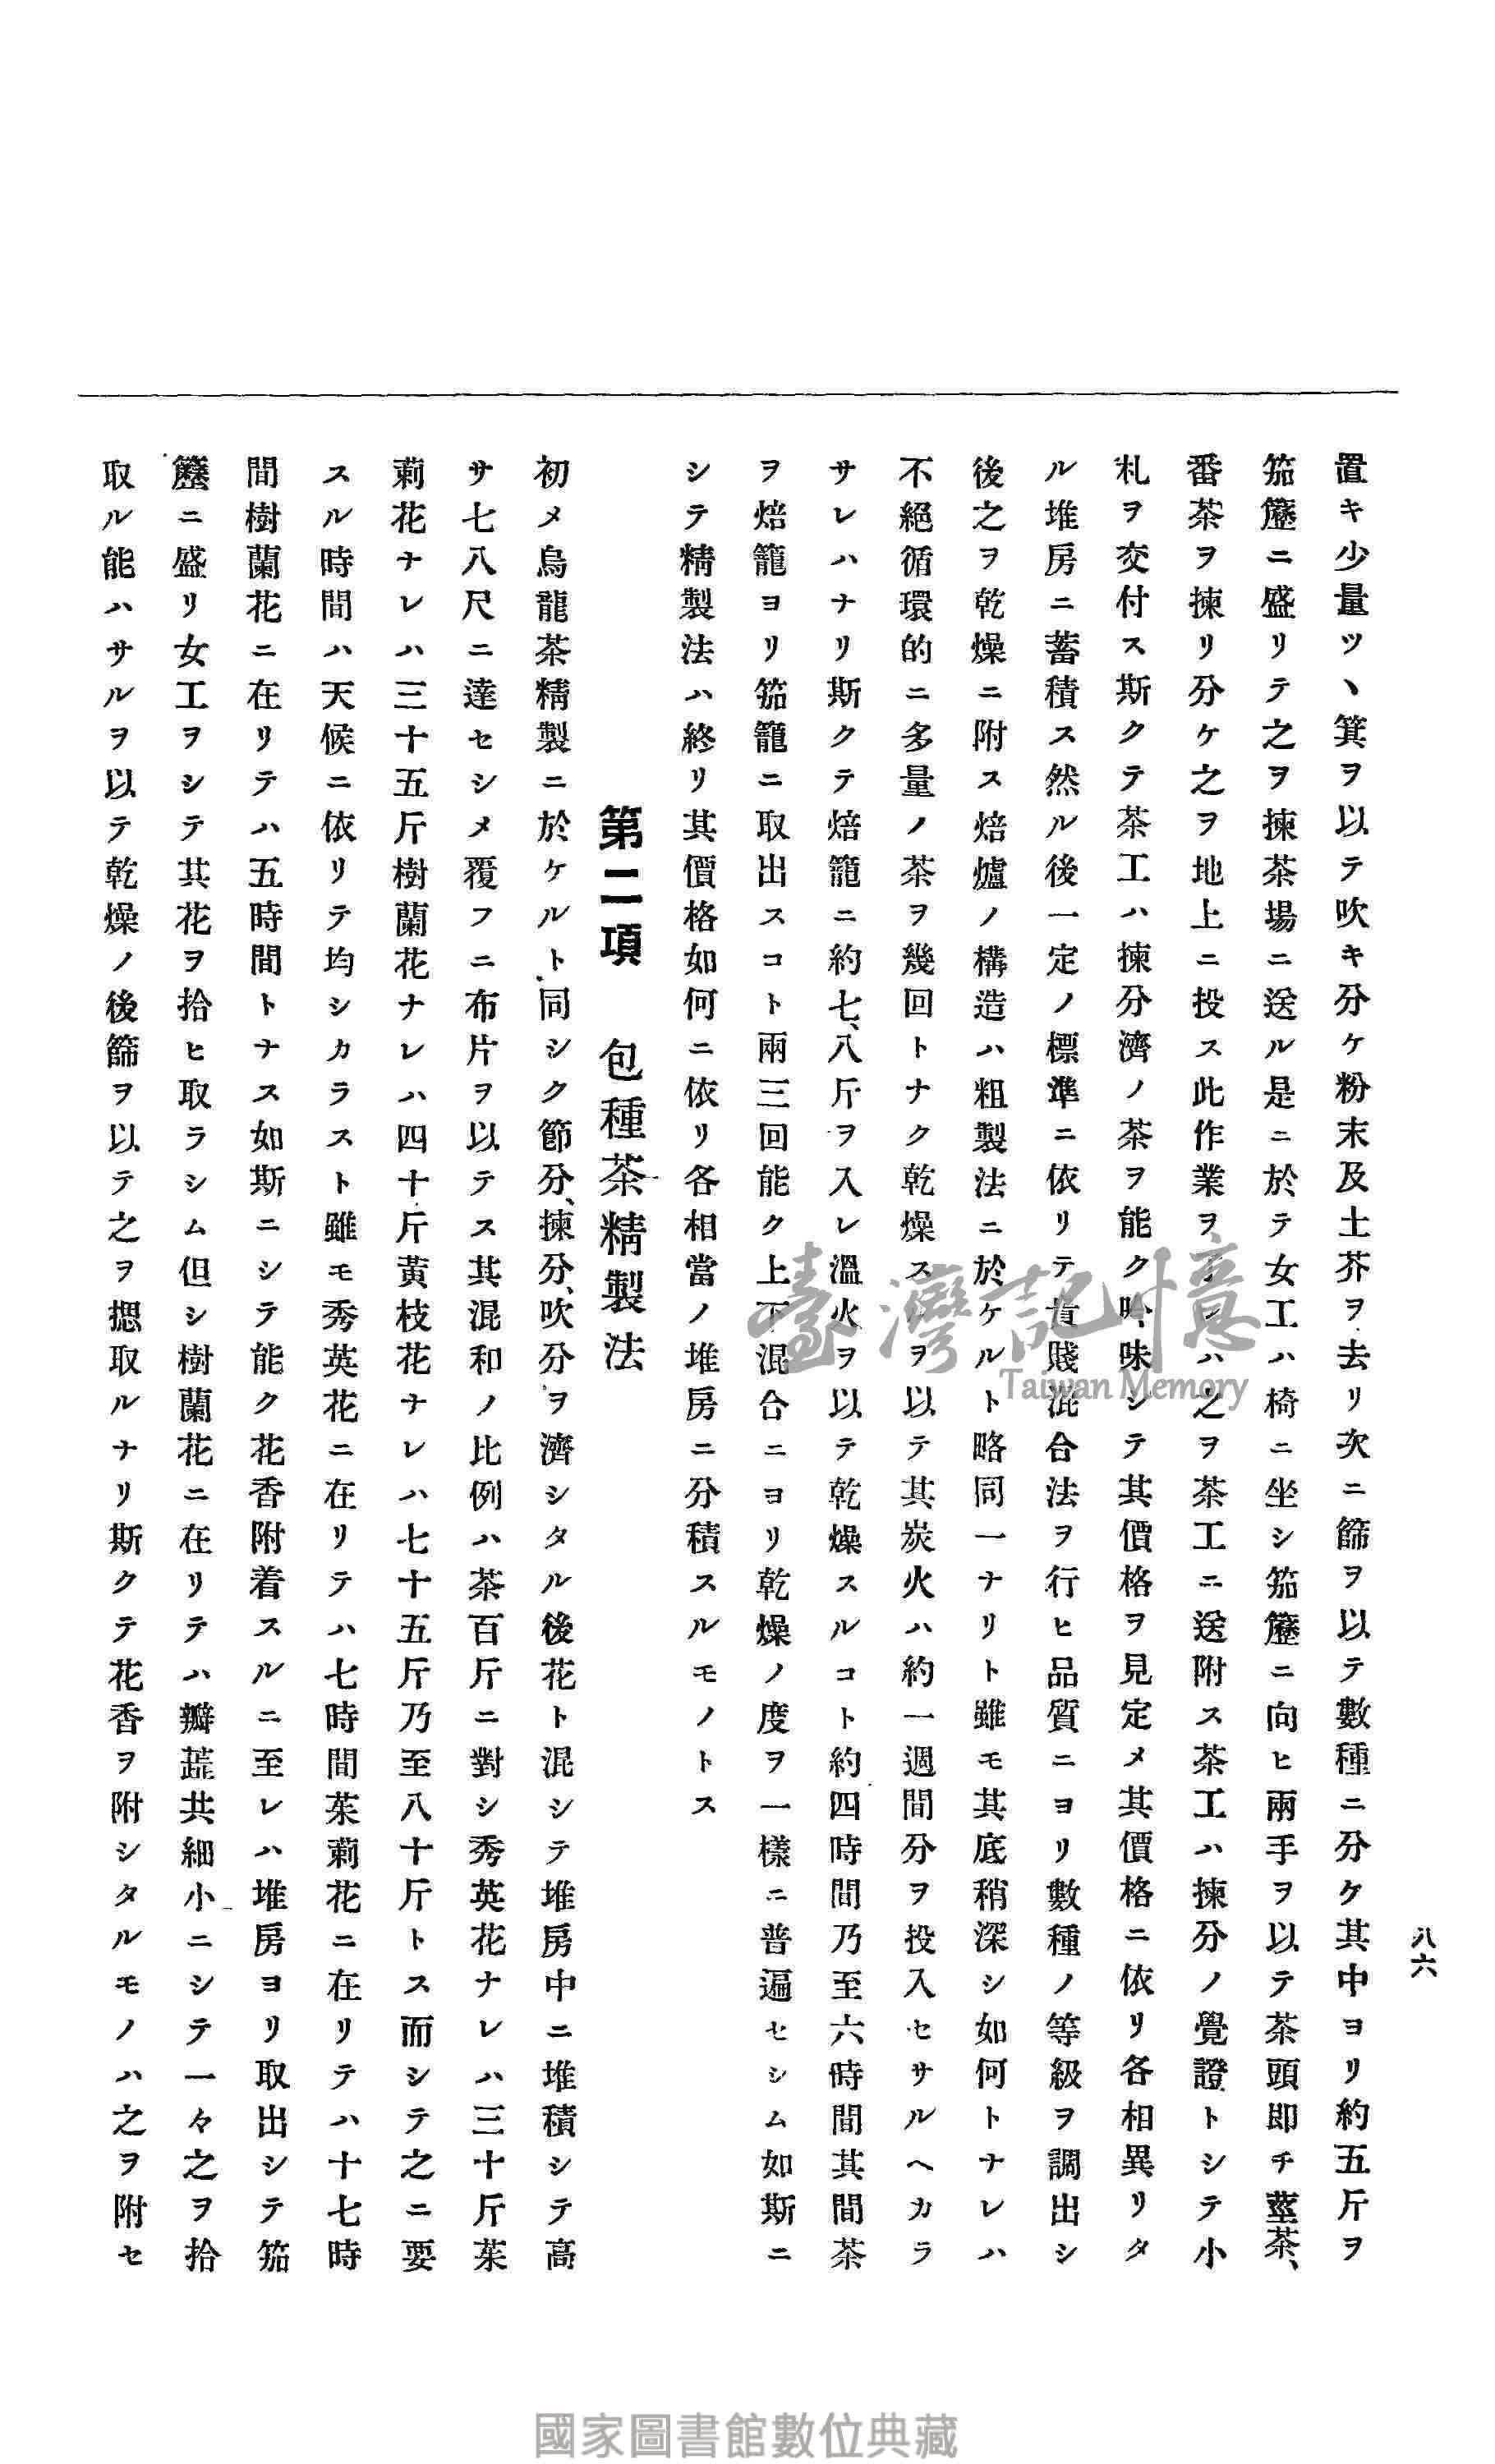 八六
置キ少量ツヽ箕ヲ以テ吹キ分ケ粉末及土芥ヲ去リ次ニ篩ヲ以テ數種ニ分ケ其中ヨリ約五斤ヲ
笳簺ニ盛リテ之ヲ揀茶場ニ送ル是ニ於テ女工ハ椅ニ坐シ笳ニ向ヒ兩手ヲ以テ茶頭即チ莖茶、
番茶ヲ揀リ分ケ之ヲ地上ニ投ス此作業ヲ了レハ之ヲ茶工ニ送附ス茶工ハ揀分ノ覺證トシテ小
札ヲ交付ス斯クテ茶工ハ揀分濟ノ茶ヲ能ク吟味シテ其價格ヲ見定メ其價格ニ依リ各相異リタ
ル堆房ニ蓄積ス然ル後一定ノ標準ニ依リテ貴賤混合法ヲ行ヒ品質ニヨリ數種ノ等級ヲ調出シ
後之ヲ乾燥ニ附ス焙爐ノ構造ハ粗製法ニ於ケルト略同一ナリト雖モ其底稍深シ如何トナレハ
不絕循環的ニ多量ノ茶ヲ幾回トナク乾燥スルヲ以テ其炭火ハ約一週間分ヲ投入セサルヘカラ
サレハナリ斯クテ焙籠ニ約七、八斤ヲ入レ溫火ヲ以テ乾燥スルコト約四時間乃至六時間其間茶
ヲ焙籠ヨリ笳籠ニ取出スコト兩三回能ク上下混合ニヨリ乾燥ノ度ヲ一樣ニ普遍セシム如斯ニ
シテ精製法ハ終リ其價格如何ニ依リ各相當ノ堆房ニ分積スルモノトス
第二項 包種茶精製法
初メ烏龍茶精製ニ於ケルト同シク節分、揀分、吹分ヲ濟シタル後花ト混シテ堆房中ニ堆積シテ高
サ七八尺ニ達セシメ覆フニ布片ヲ以テス其混和ノ比例ハ茶百斤ニ對シ秀英花ナレハ三十斤茉
莉花ナレハ三十五斤樹蘭花ナレハ四十斤黃枝花ナレハ七十五斤乃至八十斤トス而シテ之ニ要
スル時間ハ天候ニ依リテ均シカラスト雖モ秀英花ニ在リテハ七時間茉莉花ニ在リテハ十七時
間樹蘭花ニ在リテハ五時間トナス如斯ニシテ能ク花香附着スルニ至レハ堆房ヨリ取出シテ笳
ニ盛リ女工ヲシテ其花ヲ拾ヒ取ラシム但シ樹蘭花ニ在リテハ瓣蕋共細小ニシテ一々之ヲ拾
取ル能ハサルヲ以テ乾燥ノ後篩ヲ以テ之ヲ摁取ルナリ斯クテ花香ヲ附シタルモノハ之ヲ附セ
臺灣記憶
Taiwan Memory
國家圖書館數位典藏